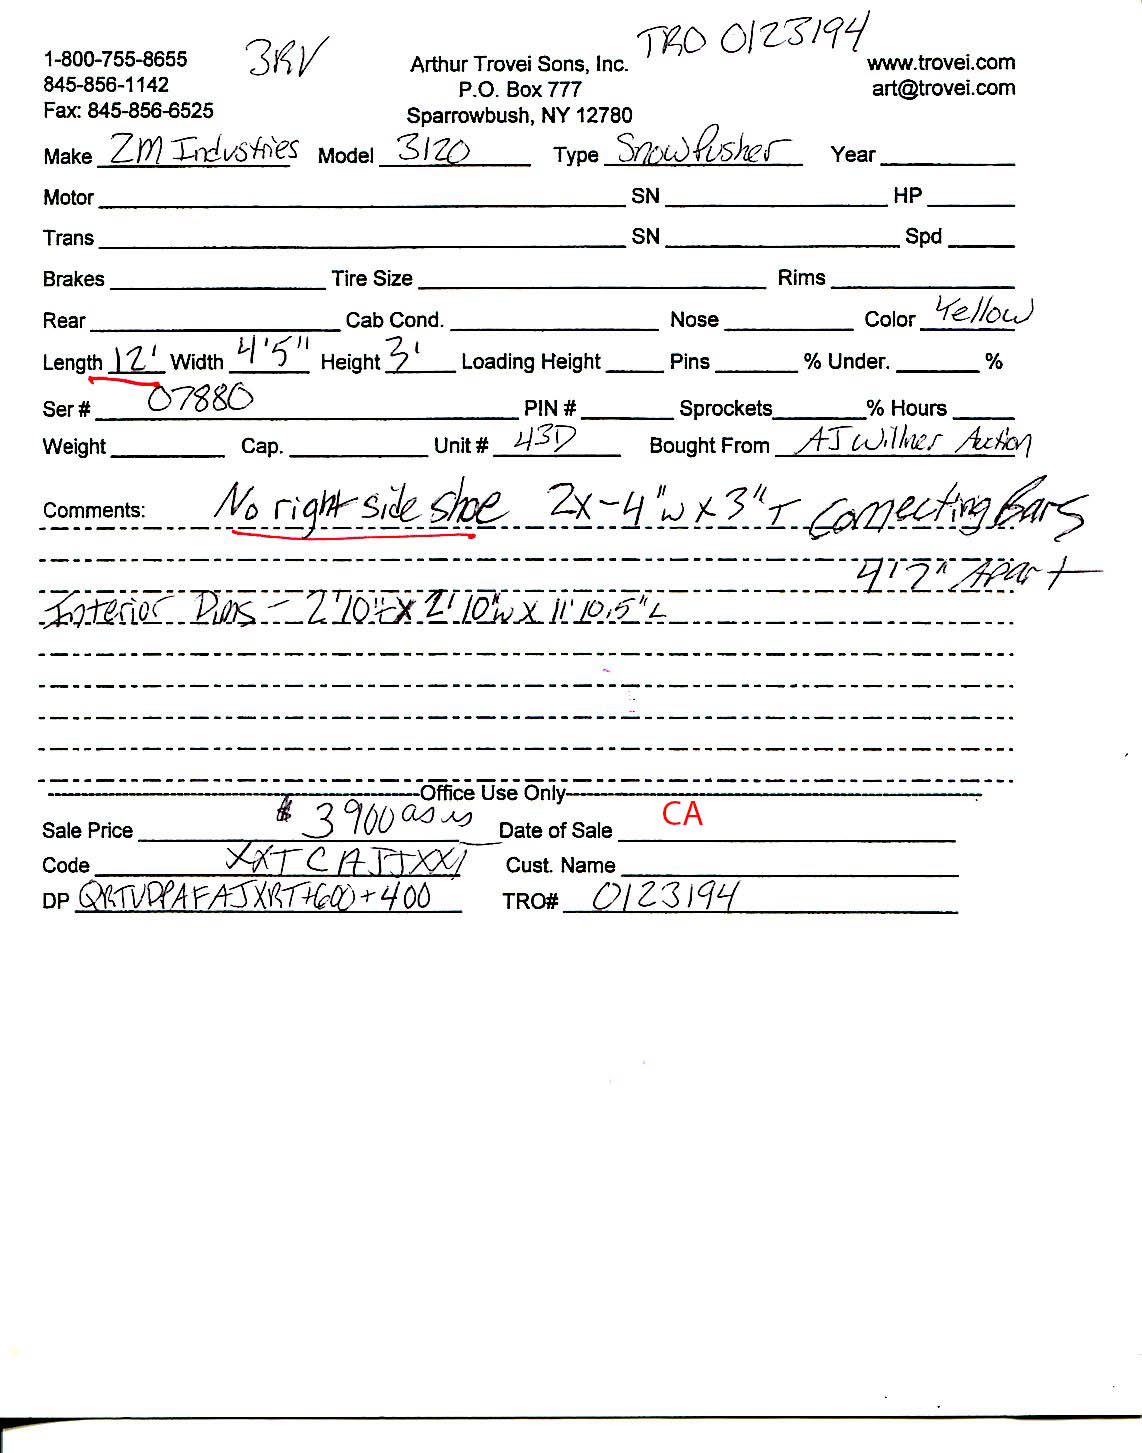 1-800-755-8655 3RV Arthur Trovei Sons, Inc. TRO 0123194 www.trovei.com
845-856-1142 P.O. Box 777 art@trovei.com
Fax: 845-856-6525 Sparrowbush, NY 12780
Make ZM Industries Model 3120 Type Snow Pusher Year
Motor SN HP
Trans SN Spd
Brakes Tire Size Rims
Rear Cab Cond. Nose Color Yellow
Length 12' Width 4'5" Height 3' Loading Height Pins % Under. %
Ser # 07880 PIN # Sprockets % Hours
Weight Cap. Unit # 43D Bought From AJ Willner Auction
Comments: No right side shoe 2x-4"W x 3"T Connecting Bars
4'2" Apart
Interior Dims - 2'10"T X 2'10"W X 11'10.5"L
Office Use Only
Sale Price $ 3900 as is Date of Sale CA
Code XXTCAJJXX/ Cust. Name
DP QRTVDPAFAJXRT+600+400 TRO# 0123194